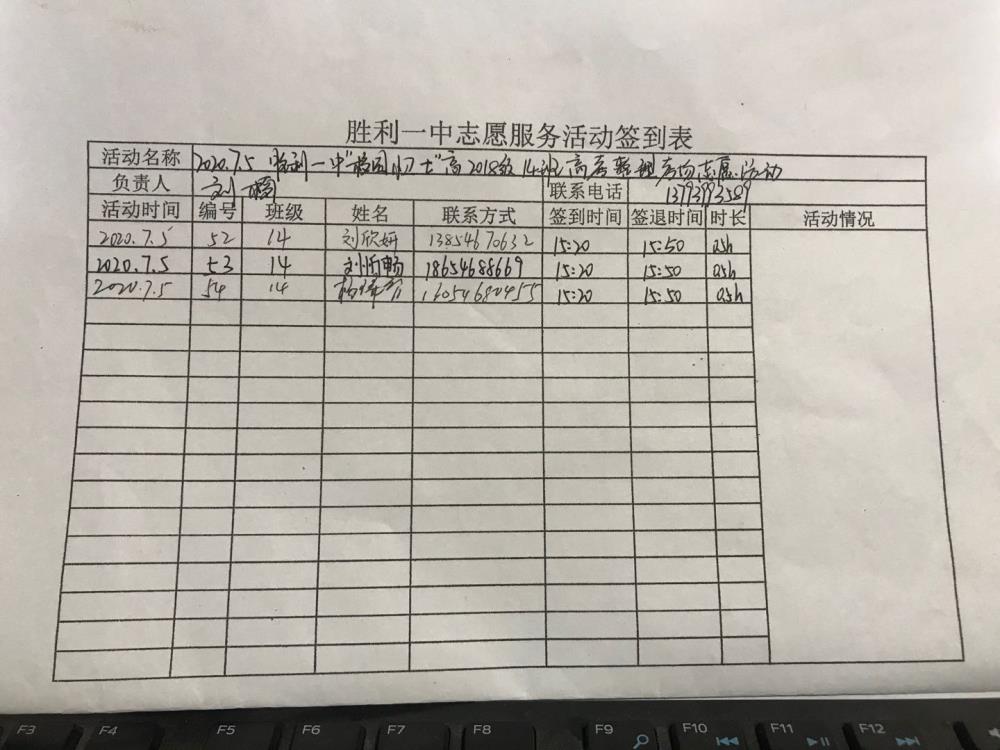 胜利一中志愿服务活动签到表
活动名称 2020.7.5 胜利一中"校园卫士"高2018级14班高考整理考场志愿活动
负责人 刘 联系电话 13793993589
活动时间 编号 班级 姓名 联系方式 签到时间 签退时间 时长 活动情况
2020.7.5 52 14 刘欣妍 13854670632 15:20 15:50 0.5h
2020.7.5 53 14 刘忻畅 18654688669 15:20 15:50 0.5h
2020.7.5 54 14 杨 15:20 15:50 0.5h
F3 F4 F5 F6 F7 F8 F9 F10 F11 F12